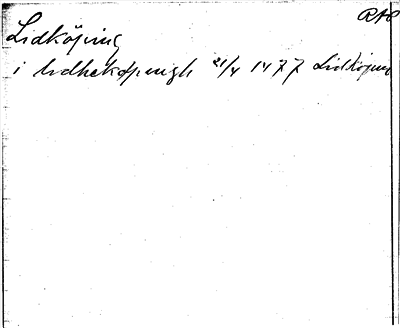 RAP
Lidköping
i lidhekøpungh 21/4 1477 Lidköping